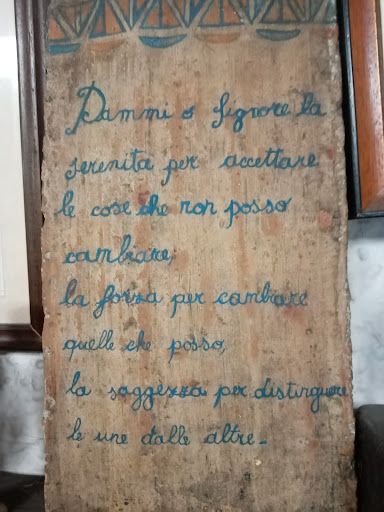 Dammi o Signore la
serenita per accettare
le cose che non posso
cambiare,
la forza per cambiare
quelle che posso,
la saggezza per distinguere
le une dalle altre.